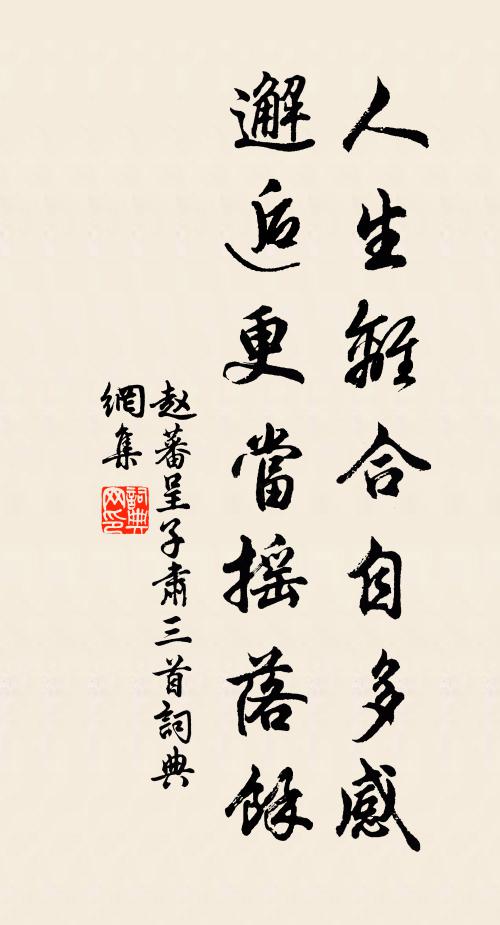 人生離合自多感
邂逅更當摇落餘
赵蕃呈子肅三首詞典
網集
詞典网印